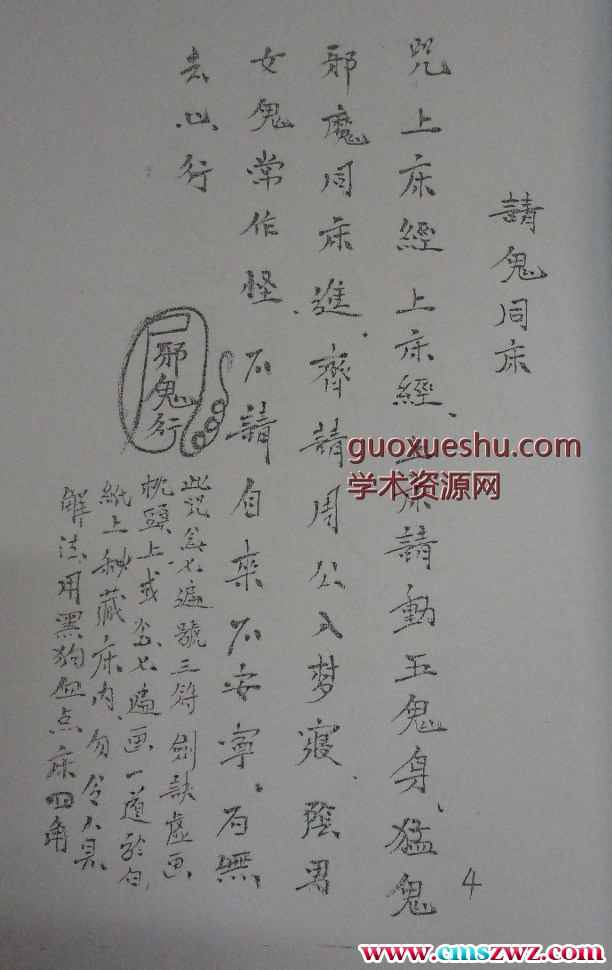 請鬼同床
咒上床經上床經、上床請動五鬼身、猛鬼
邪魔同床進、齊請周公入梦寢、陰男
女鬼常作怪 不請自来不安寧。有無
去心行
邪鬼行
此咒念七遍號三符劍訣虚画
枕頭上或念七遍画一道於白
紙上秘藏床内、勿令人見
解法用黑狗血点床四角
4
guoxueshu.com
学术资源网
www.cmszwz.com